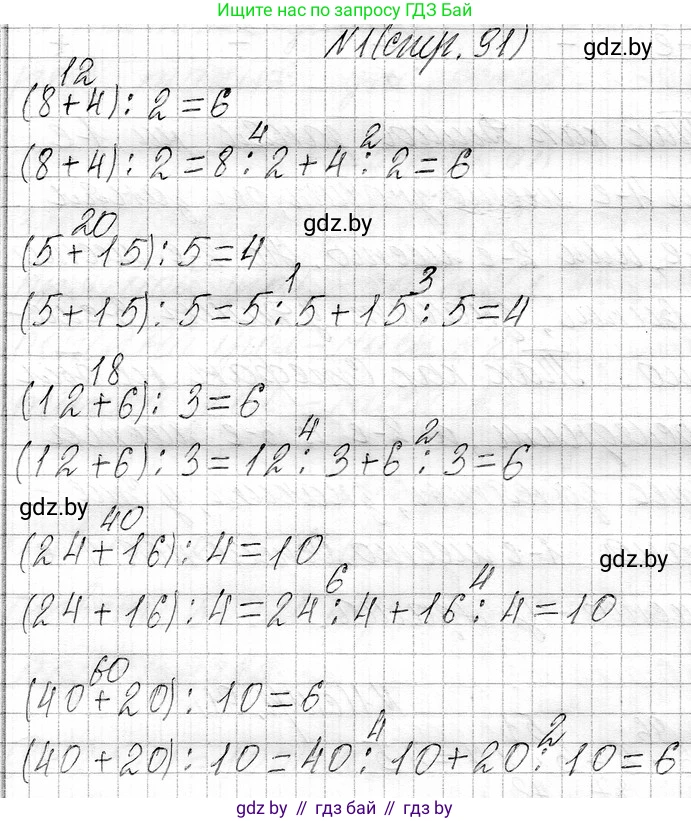 Ищите нас по запросу ГДЗ Бай
№1(стр. 91)
gdz.by
12
(8+4) : 2 = 6
4 2
(8+4) : 2 = 8 : 2 + 4 : 2 = 6
20
gdz.by
(5+15) : 5 = 4
1 3
(5+15) : 5 = 5 : 5 + 15 : 5 = 4
18
(12+6) : 3 = 6
4 2
(12+6) : 3 = 12 : 3 + 6 : 3 = 6
gdz.by
40
(24+16) : 4 = 10
gdz.by
6 4
(24+16) : 4 = 24 : 4 + 16 : 4 = 10
60
(40+20) : 10 = 6
4 2
(40+20) : 10 = 40 : 10 + 20 : 10 = 6
gdz.by // гдз бай // gdz.by